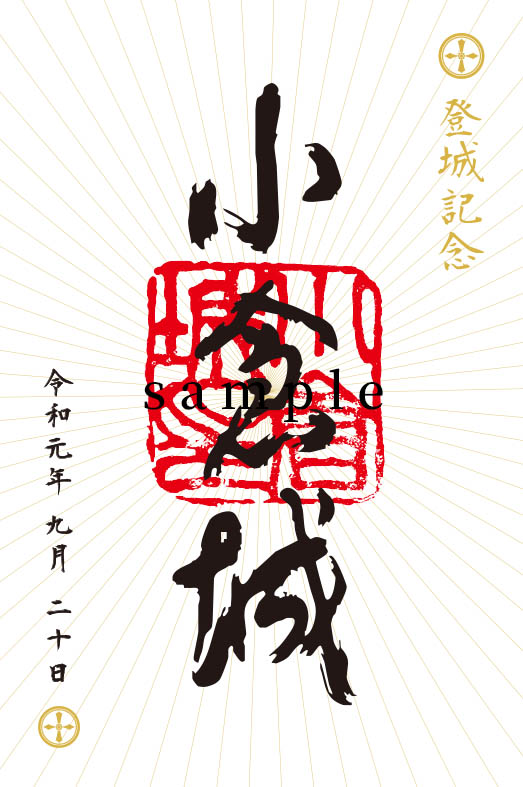 登城記念
小
城
sample
令和元年 九月 二十日